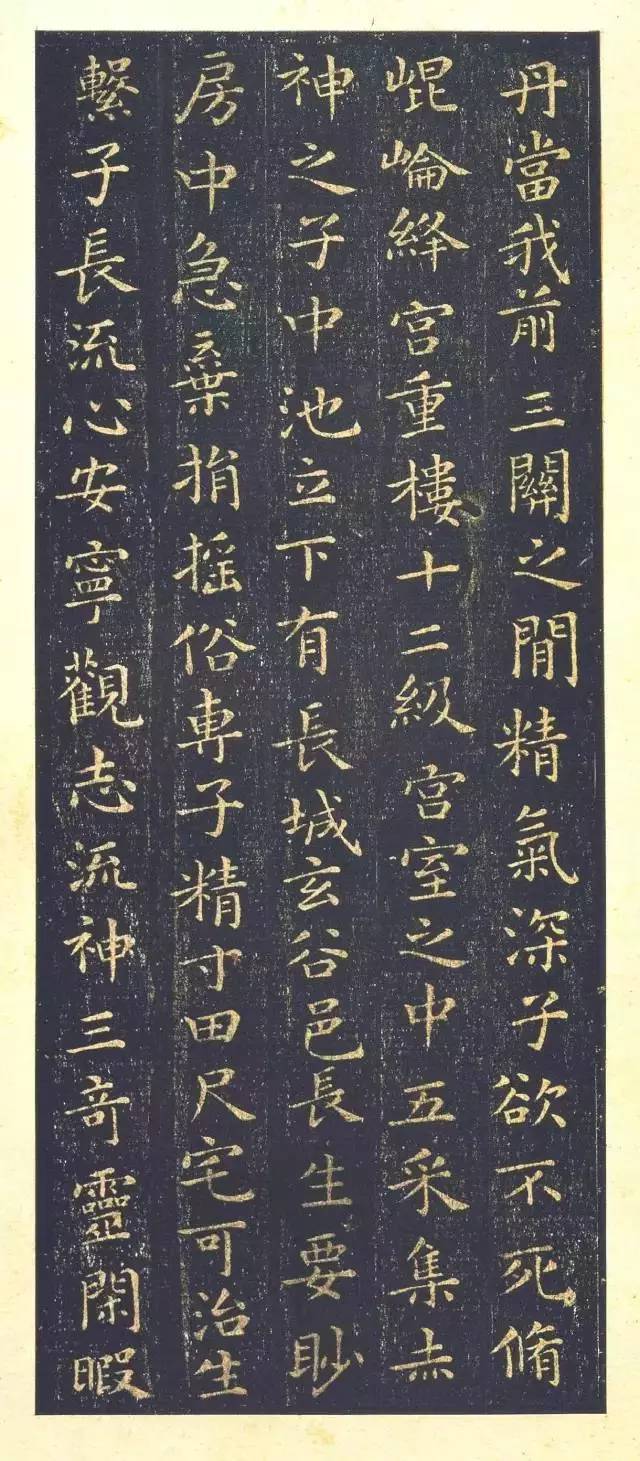 丹當我前三關之間精氣深子欲不死脩
崐崘絳宫重樓十二級宫室之中五采集赤
神之子中池立下有長城玄谷邑長生要眇
房中急棄捐摇俗專子精寸田尺宅可治生
繋子長流心安寧觀志流神三竒靈閑暇